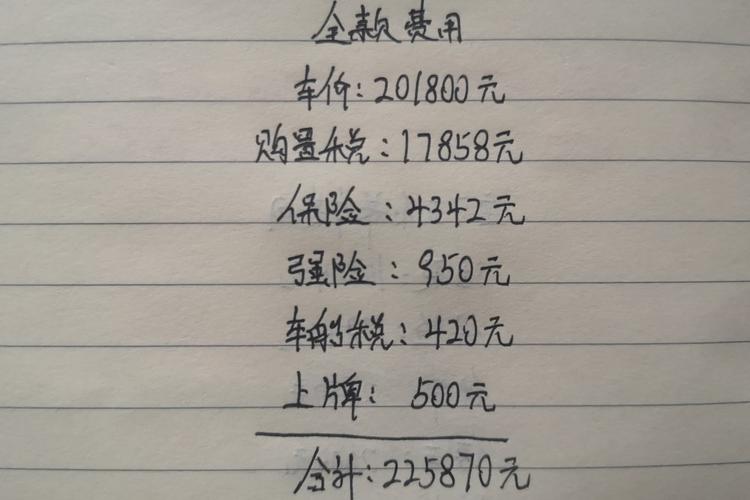 全款费用
车价:201800元
购置税:17858元
保险:4342元
强险:950元
车船税:420元
上牌: 500元
合计:225870元